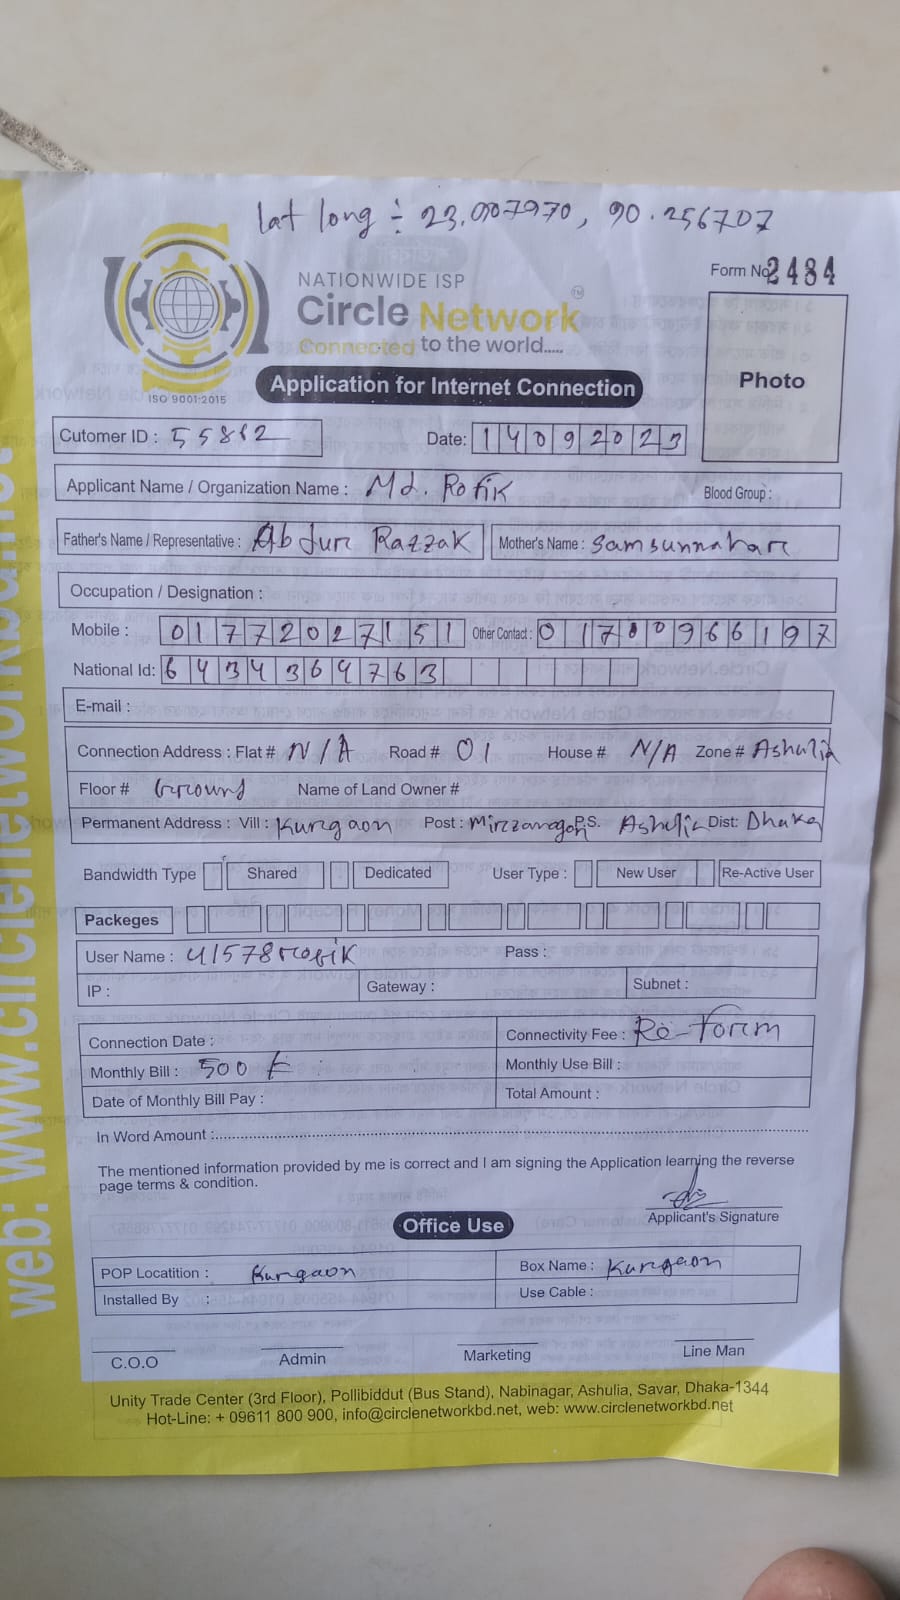 lat long ÷ 23.907970, 90.256707
Form No. 2484
NATIONWIDE ISP
Circle Network TM
Connected to the world.....
ISO 9001:2015
Application for Internet Connection
Photo
Cutomer ID : 55862 Date: 14092023
Applicant Name / Organization Name : Md. Rofik Blood Group :
Father's Name / Representative : Abdur Razzak Mother's Name : Samsunnahar
Occupation / Designation :
Mobile : 01772027151 Other Contact : 01700966197
National Id: 6434364763
E-mail :
Connection Address : Flat # N/A Road # 01 House # N/A Zone # Ashulia
Floor # Ground Name of Land Owner #
Permanent Address : Vill : Kurgaon Post : Mirzanagor P.S. Ashulia Dist: Dhaka
Bandwidth Type Shared Dedicated User Type : New User Re-Active User
Packeges
User Name : 41578rofik Pass :
IP : Gateway : Subnet :
Connection Date : Connectivity Fee : Re-form
Monthly Bill : 500 ₺ Monthly Use Bill :
Date of Monthly Bill Pay : Total Amount :
In Word Amount :
The mentioned information provided by me is correct and I am signing the Application learning the reverse
page terms & condition.
Applicant's Signature
Office Use
POP Locatition : Kurgaon Box Name : Kurgaon
Installed By : Use Cable :
C.O.O Admin Marketing Line Man
Unity Trade Center (3rd Floor), Pollibiddut (Bus Stand), Nabinagar, Ashulia, Savar, Dhaka-1344
Hot-Line: + 09611 800 900, info@circlenetworkbd.net, web: www.circlenetworkbd.net
web: www.circlenetworkbd.net